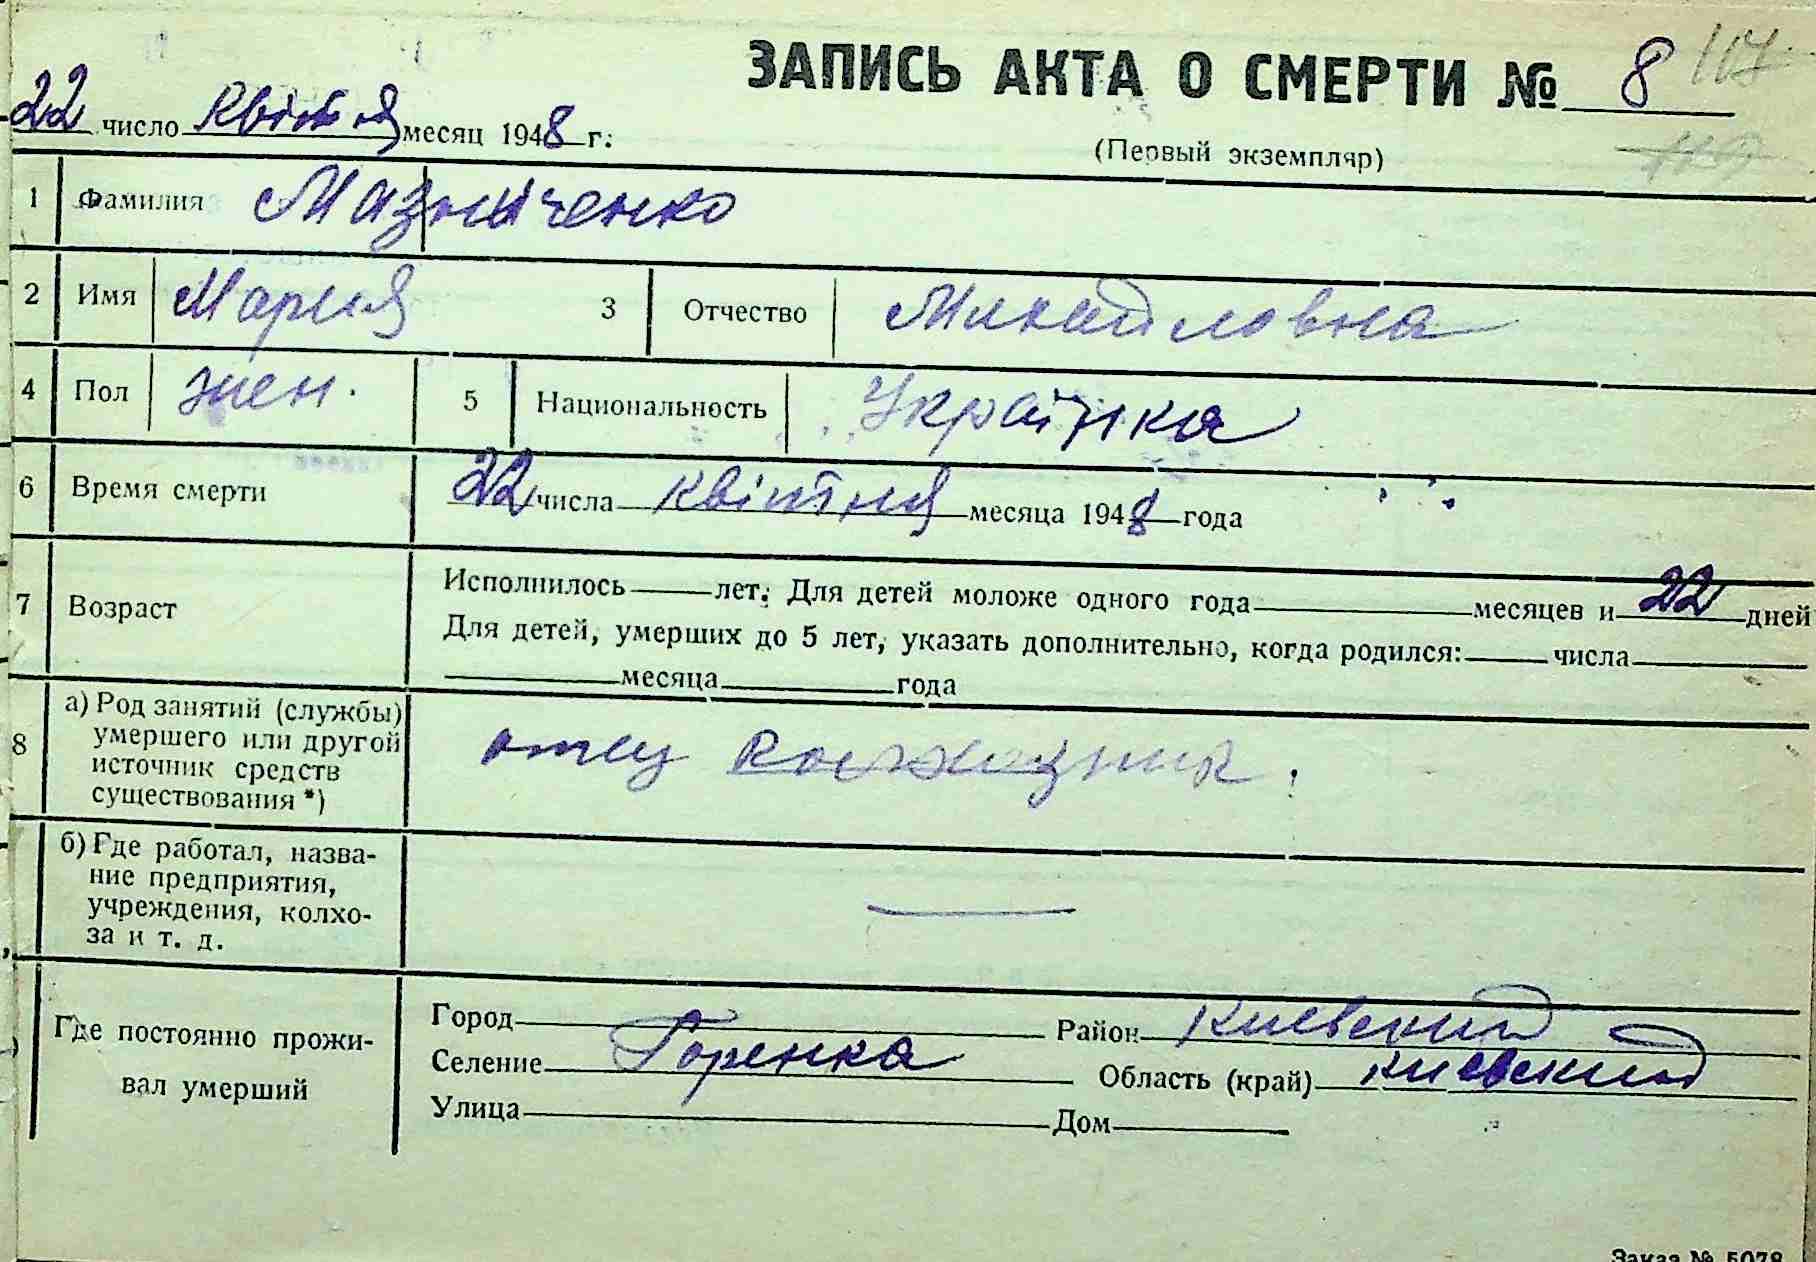 ЗАПИСЬ АКТА О СМЕРТИ № 8 117
22 число квітня месяц 1948 г.
(Первый экземпляр)
1 Фамилия Мазниченко
2 Имя Мария 3 Отчество Михайловна
4 Пол жен. 5 Национальность Українка
6 Время смерти 22 числа квітня месяца 1948 года
7 Возраст Исполнилось лет. Для детей моложе одного года месяцев и 22 дней
Для детей, умерших до 5 лет, указать дополнительно, когда родился: числа
месяца года
8 а) Род занятий (службы)
умершего или другой
источник средств
существования *)
отец колхозник.
б) Где работал, назва-
ние предприятия,
учреждения, колхо-
за и т. д.
—
Где постоянно прожи-
вал умерший
Город Район Киевский
Селение Горенка Область (край) Киевский
Улица Дом
Заказ № 5078